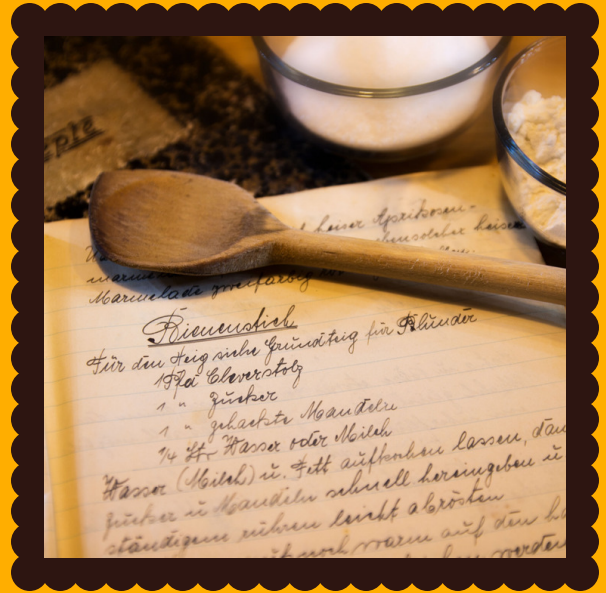 heiser Aprikosen-
ebensolcher heiser
Marmelade zweifarbig
Bienenstich
Für den Teig siehe Grundteig für Plunder
1 Pfd Cleverstolz
1 " Zucker
1 " gehackte Mandeln
1/4 Wasser oder Milch
Wasser (Milch) u. Fett aufkochen lassen, dan
Zucker u Mandeln schnell hereingeben u
ständigem rühren leicht abrösten
noch warm auf den
werden